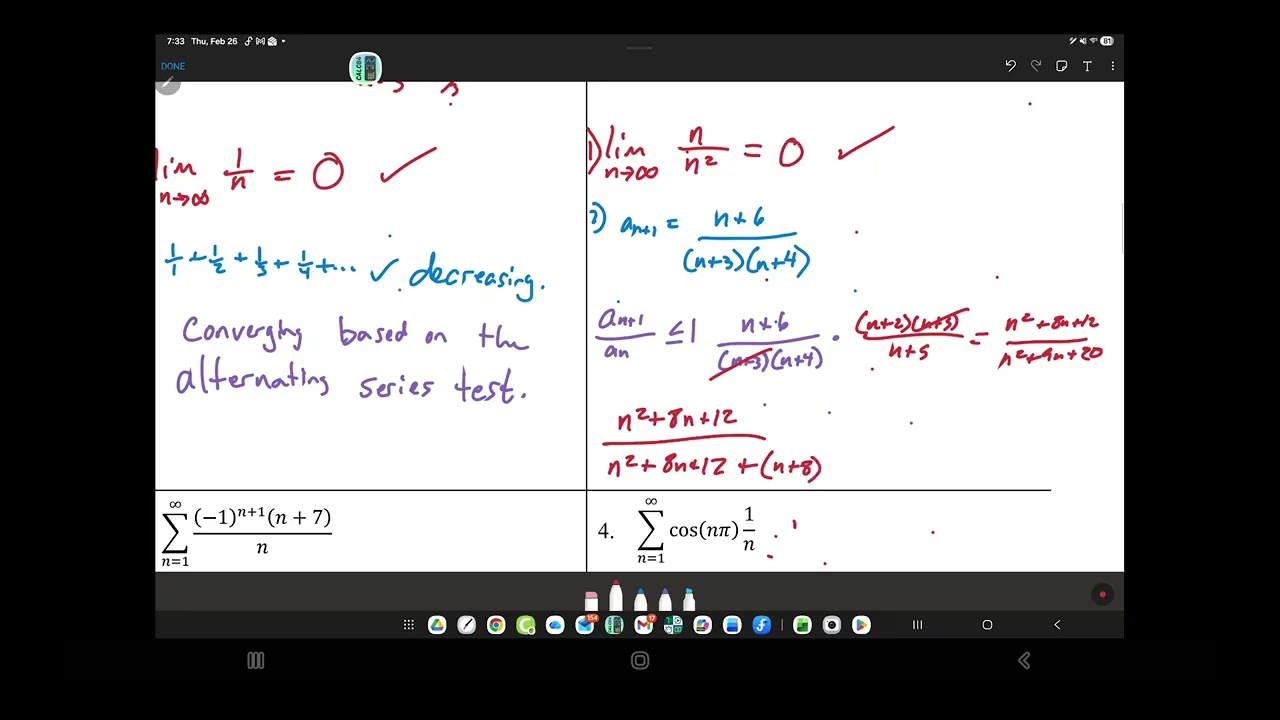 7:33 Thu, Feb 26
81
DONE
CALC84
T
lim n→∞ 1/n = 0 ✓
1/1 + 1/2 + 1/3 + 1/4 + ... ✓ decreasing.
Converging based on the
alternating series test.
∞ Σ n=1 (-1)^{n+1}(n + 7) / n
1) lim n→∞ n/n² = 0 ✓
2) a_{n+1} = n+6 / (n+3)(n+4)
a_{n+1}/a_n ≤ 1 n+6 / (n+3)(n+4) · (n+2)(n+3) / n+5 = n²+8n+12 / n²+9n+20
n²+8n+12 / n²+8n+12 + (n+8)
4. ∞ Σ n=1 cos(nπ) 1/n
154
17